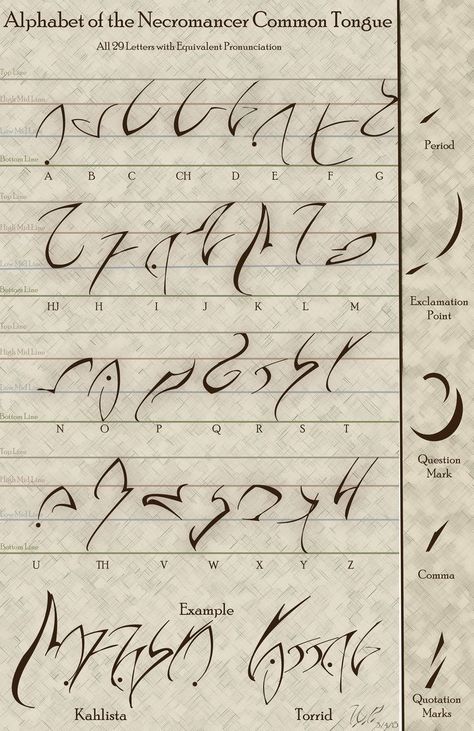 Alphabet of the Necromancer Common Tongue
All 29 Letters with Equivalent Pronunciation
Top Line
High Mid Line
Low Mid Line
Bottom Line
A B C CH D E F G
Top Line
High Mid Line
Low Mid Line
Bottom Line
HJ H I J K L M
Top Line
High Mid Line
Low Mid Line
Bottom Line
N O P Q R S T
Top Line
High Mid Line
Low Mid Line
Bottom Line
U TH V W X Y Z
Example
Kahlista Torrid
Period
Exclamation
Point
Question
Mark
Comma
Quotation
Marks